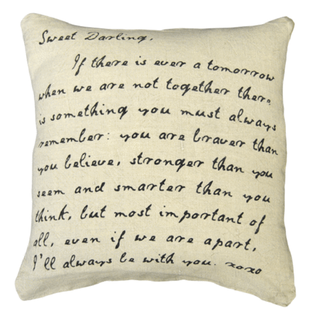 Sweet Darling,
If there is ever a tomorrow
when we are not together there
is something you must always
remember: you are braver than
you believe, stronger than you
seem and smarter than you
think, but most important of
all, even if we are apart,
I'll always be with you. xoxo